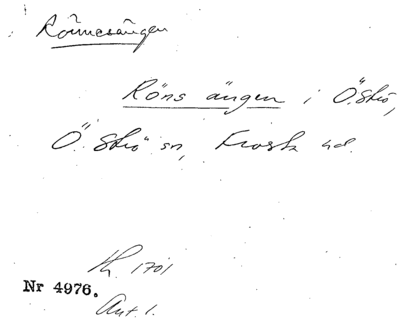 Rönnesängen
Röns ängen i Ö. Skö,
Ö. Skö sn, Frosta hd.
Lh. 1701
Nr 4976.
Ant. 1.